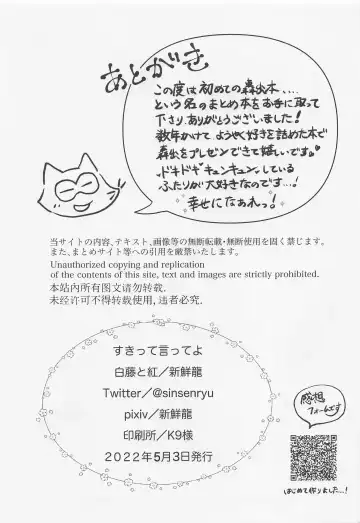 あとがき
この度は初めての森出本、...
という名のまとめ本をお手に取って
下さり、ありがとうございました!
数年かけて ようやく好きを詰めた本で
森出をプレゼンできて嬉しいです。
ドキドキ キュンキュン している
ふたりが大好きなのです...!
幸せになぁれっ!
当サイトの内容、テキスト、画像等の無断転載・無断使用を固く禁じます。
また、まとめサイト等への引用を厳禁いたします。
Unauthorized copying and replication
of the contents of this site, text and images are strictly prohibited.
本站内所有图文请勿转载.
未经许可不得转载使用,违者必究.
すきって言ってよ
白藤と紅／新鮮龍
Twitter／@sinsenryu
pixiv／新鮮龍
印刷所／K9様
2022年5月3日発行
感想
フォームです
はじめて作りました...!